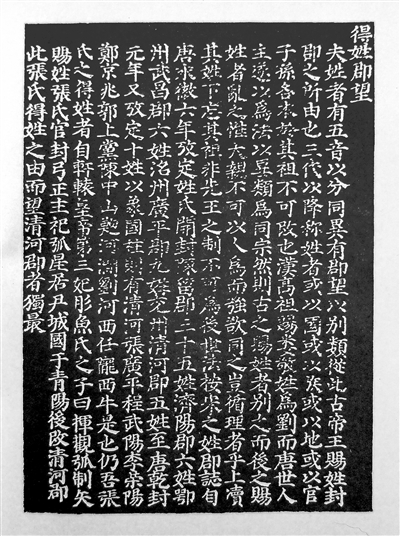 得姓郡望
夫姓者有五音以分同異有郡望以別類從此古帝王賜姓封
郡之所由也三代以降称姓者或以國或以族或以地或以官
子孫各本於其祖不可改也漢高祖賜婁敬姓為劉而唐世人
主遂以為法以異類為同宗然則古之賜姓者別之而後之賜
姓者亂之惟大親不可以人為而強欲同之豈循理者乎上瀆
其姓下忘其祖非先王之制不可為後世法按宋之姓郡誌自
唐永徽六年攷定姓氏開封陳留郡三十五姓濟陽郡六姓鄂
州武昌郡六姓洺州廣平郡九姓兗州清河郡五姓至唐乾封
元年又攷定十姓以象國柱則有清河張廣平程武陽李榮陽
鄭京兆郭上黨陳中山 河澗劉河西任隴西牛是也仍吾張
氏之得姓者自軒轅皇帝第三妃彤魚氏之子曰揮觀弧制矢
賜姓張氏官封弓正主祀弧星居尹城國于青陽後改清河郡
此張氏得姓之由而望清河郡者獨最